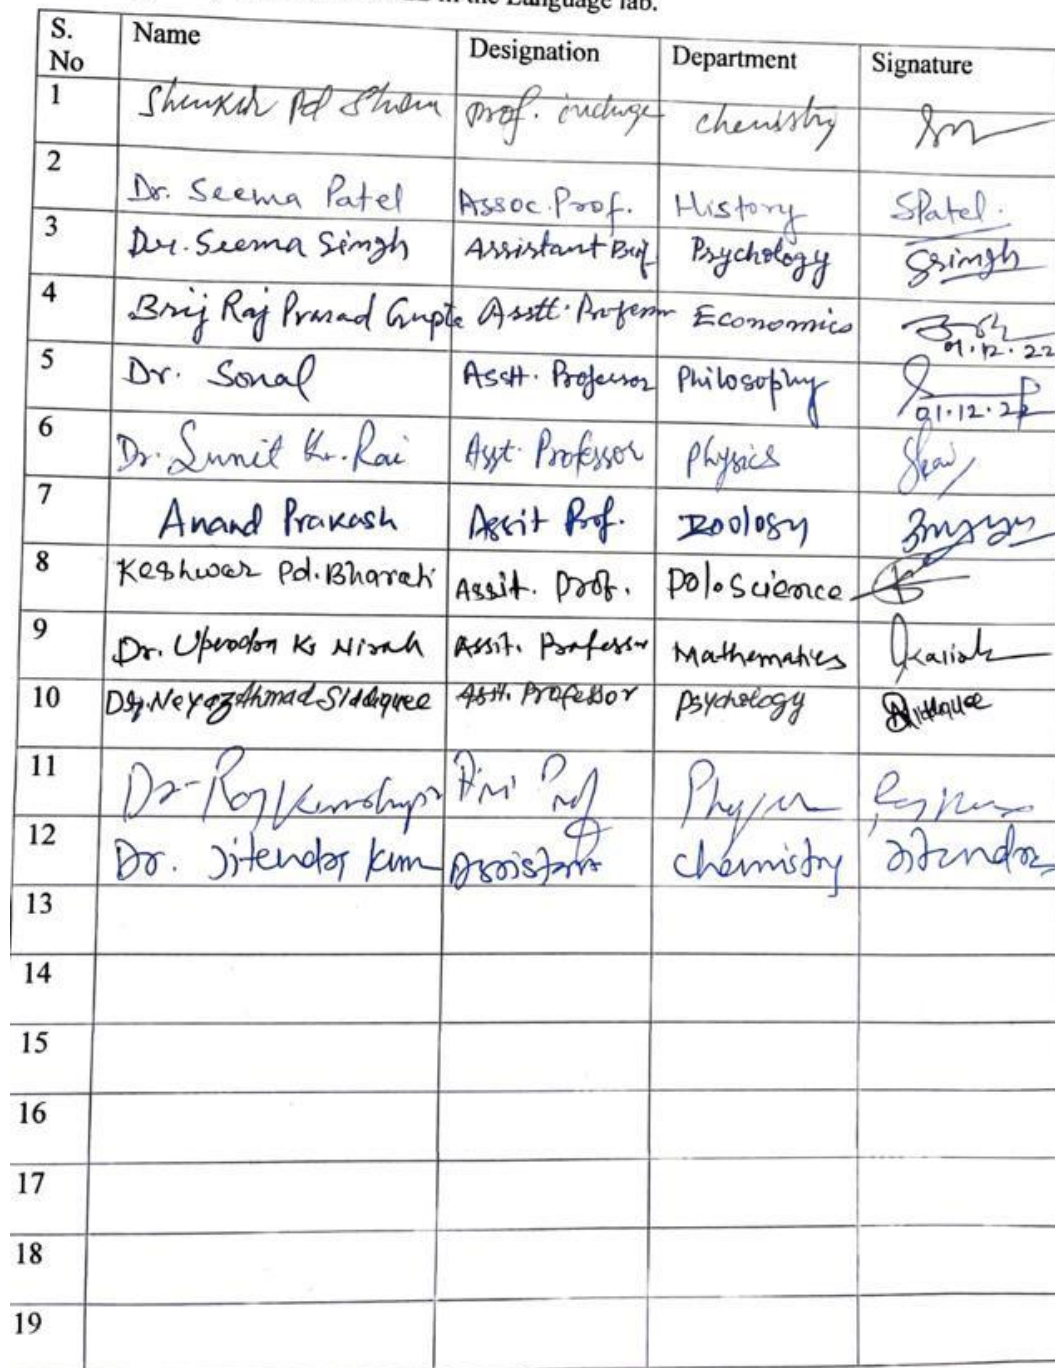 in the Language lab.
S. No Name Designation Department Signature
1 Prof. incharge chemistry
2 Dr. Seema Patel Assoc. Prof. History SPatel.
3 Dr. Seema Singh Assistant Prof Psychology SSingh
4 Brij Raj Prasad Gupta Asstt. Professor Economics 01.12.22
5 Dr. Sonal Asstt. Professor Philosophy 01.12.22
6 Dr. Sunit Kr. Rai Asst. Professor Physics
7 Anand Prakash Assit Prof. Zoology
8 Keshwar Pd. Bharati Assit. Prof. Pol. Science
9 Dr. Assit. Professor Mathematics
10 Neyaz Ahmad Siddiquee Asst. Professor Psychology
11 Dr. Raj Prof
12 Dr. Jitendra Kum Assistant chemistry Jitendra
13
14
15
16
17
18
19